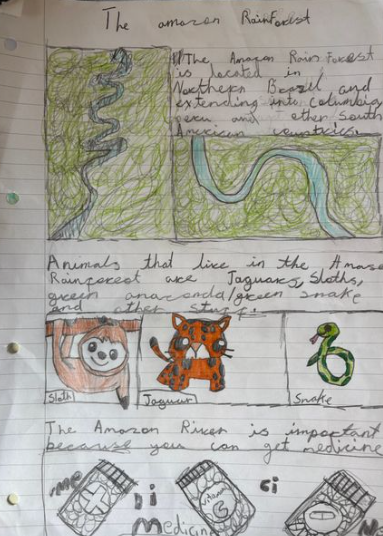 The amazon RainForest
"The Amazon Rain Forest
is located in
Northern Brazil and
extending into columbia
peru and other South
American countries.
Animals that live in the Amazon
Rainforest are Jaguars, Sloths,
green anaconda/green snake
and other stuff.
Sloth
Jaguar
Snake
The Amazon River is important
because you can get medicine
Me
Di
Ci
Vitamin
C
Medicin